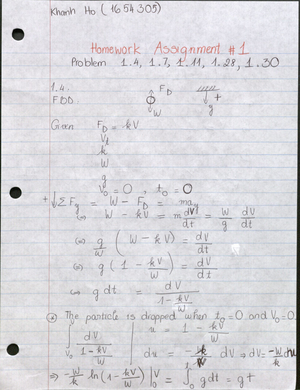 Khanh Ho (1654305)
Homework Assignment #1
Problem 1.4, 1.7, 1.11, 1.28, 1.30
1.4.
FBD: F_D W + g
Given F_D = kV
V_t
k
W
g
V_0 = 0 , t_0 = 0
+↓ΣF_y = W - F_D = ma_y
⇔ W - kV = m dV/dt = W/g dV/dt
⇔ g/W (W - kV) = dV/dt
⇔ g (1 - kV/W) = dV/dt
⇔ g dt = dV/(1 - kV/W)
The particle is dropped when t_0 = 0 and V_0 = 0.
∫_{V_0}^{V} dV/(1 - kV/W) | u = 1 - kV/W
du = -k/W dV ⇒ dV = -W/k du
⇒ -W/k ln(1 - kV/W) |^V_0 = ∫_0^t g dt = gt